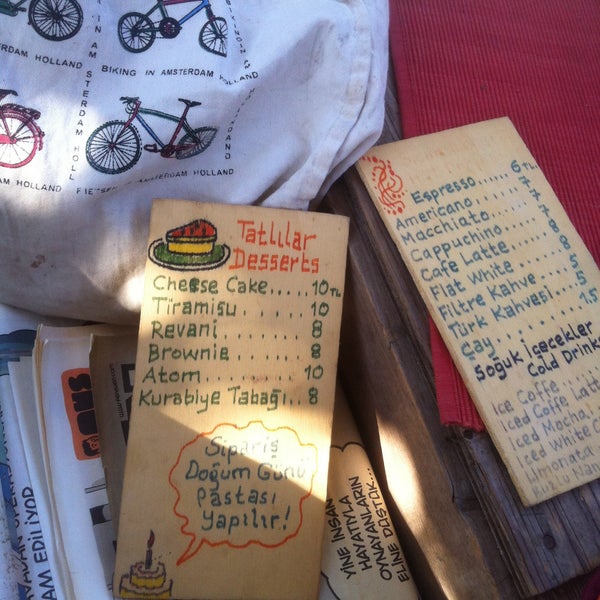 DAM HOLLAND
BIKING IN AMSTERDAM HOLLAND
AM HOLLAND
FIETSEN
AMSTERDAM HOLLAND
Tatlılar
Desserts
Cheese Cake..... 10 TL
Tiramisu ....... 10
Revani ......... 8
Brownie......... 8
Atom............ 10
Kurabiye Tabağı.. 8
Sipariş
Doğum Günü
Pastası
Yapılır!
Espresso...... 6 TL
Americano..... 7
Macchiato..... 7
Cappuchino.... 7
Cafe Latte.... 8
Flat White.... 8
Filtre Kahve.. 5
Türk Kahvesi... 5
Çay .......... 1.5
Soğuk İçecekler
Cold Drink
Ice Coffe
Iced Coffe Latte
Iced Mocha
Iced White C
Limonata
YİNE İNSAN
HAYATIYLA
OYNAYANLARIN
ELİNE DÜŞTÜK...
AM EDİLİYOR